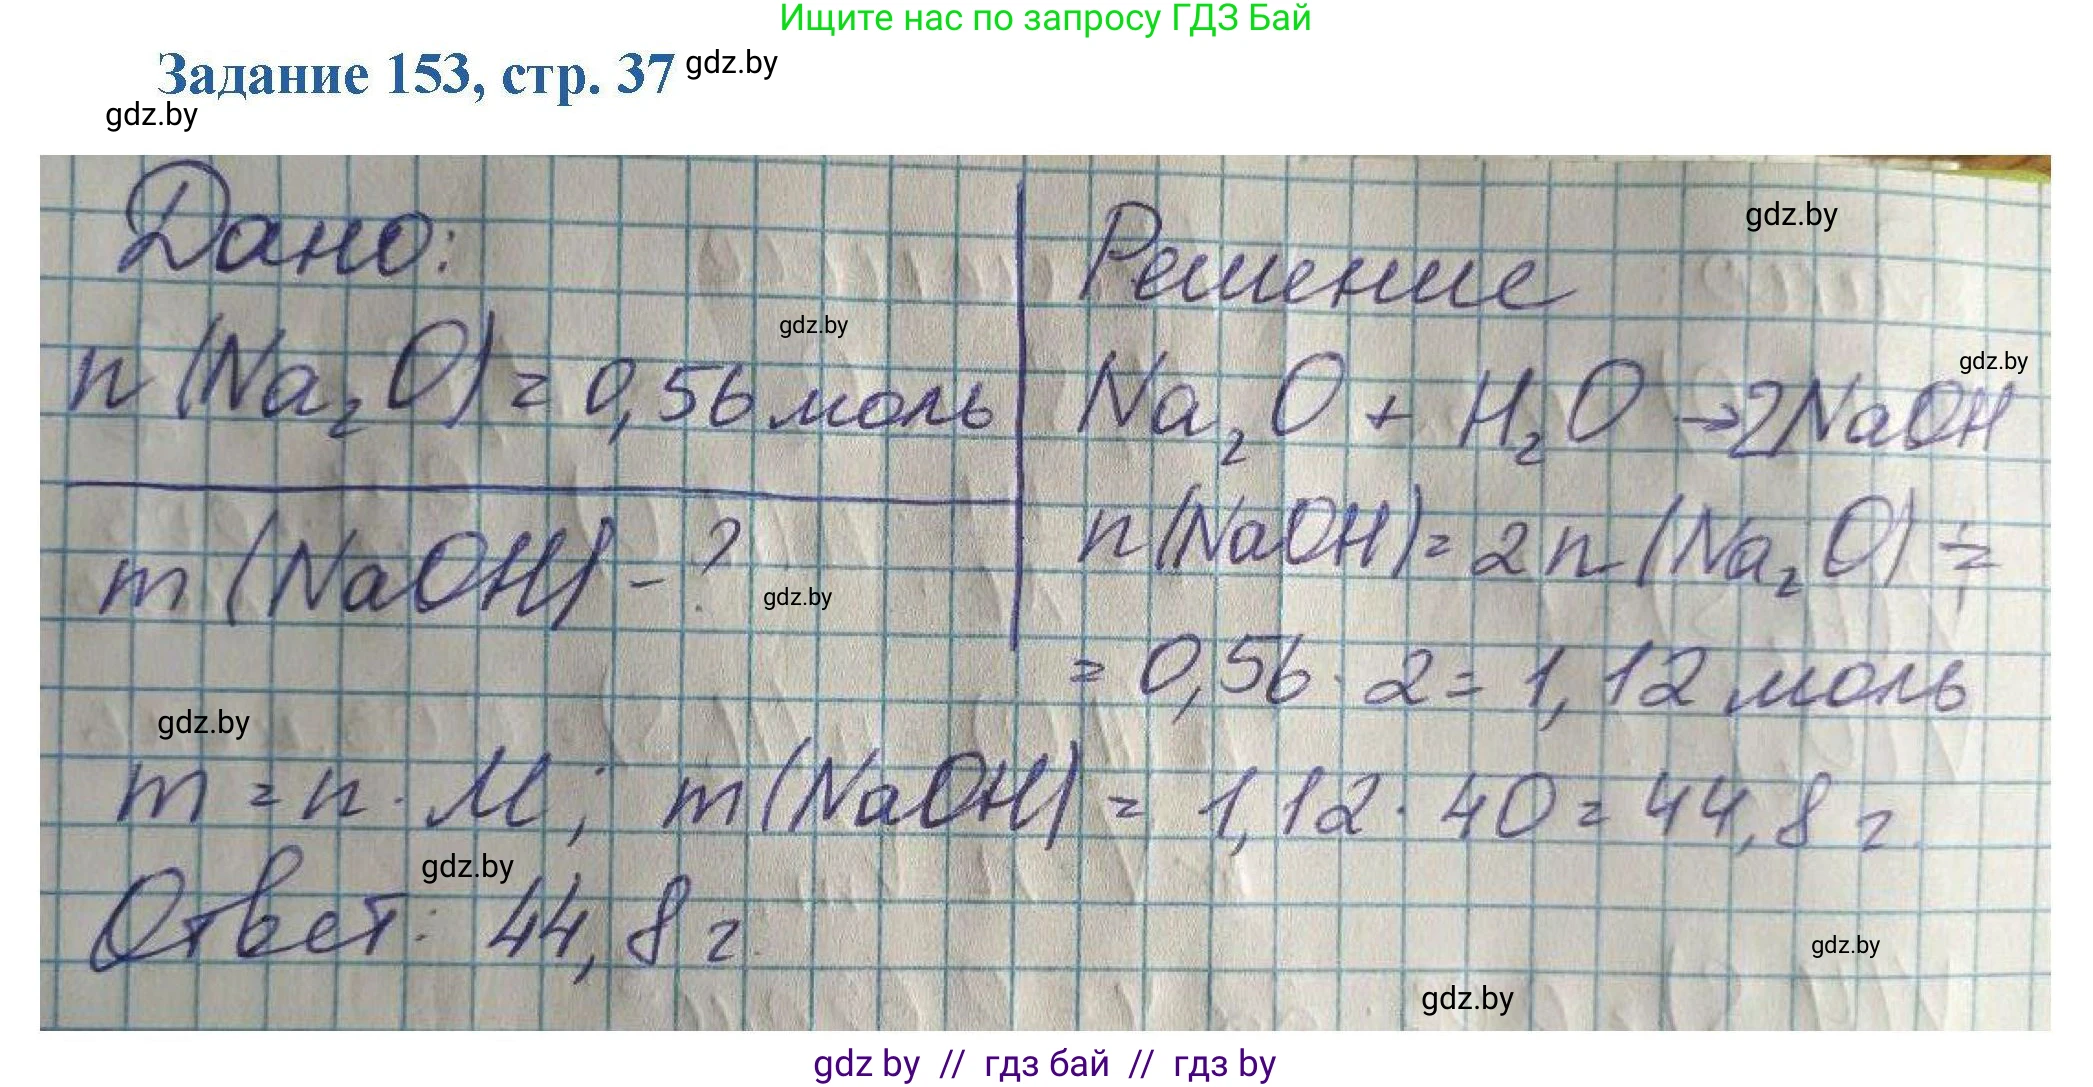 Ищите нас по запросу ГДЗ Бай
Задание 153, стр. 37 gdz.by
gdz.by
gdz.by
Дано:
Решение
gdz.by
n (Na₂O) = 0,56 моль
Na₂O + H₂O → 2NaOH
gdz.by
m (NaOH) - ?
gdz.by
n (NaOH) = 2n (Na₂O) =
= 0,56 · 2 = 1,12 моль
gdz.by
m = n · M; m (NaOH) = 1,12 · 40 = 44,8 г.
gdz.by
Ответ: 44,8 г.
gdz.by
gdz.by
gdz by // гдз бай // гдз by